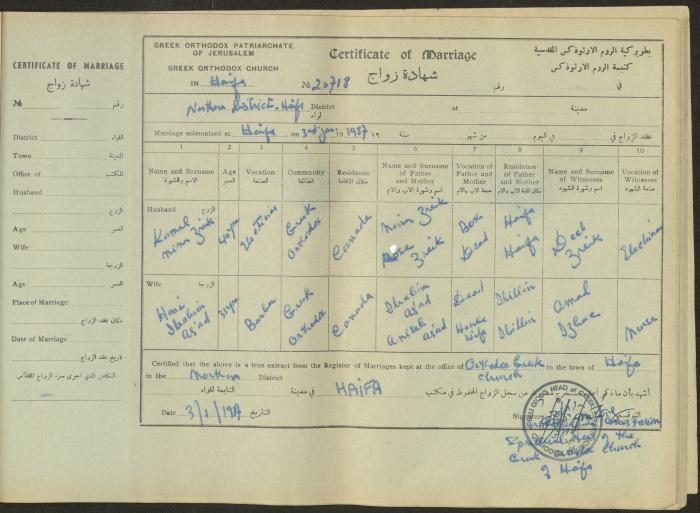 CERTIFICATE OF MARRIAGE
شهادة زواج
№ رقم
District لواء
Town المدينة
Office of المكتب
Husband
الزوج
Age العمر
Wife
الزوجة
Age العمر
Place of Marriage
مكان عقد الزواج
Date of Marriage
تاريخ عقد الزواج
GREEK ORTHODOX PATRIARCHATE
OF JERUSALEM
GREEK ORTHODOX CHURCH
IN Haifa
Certificate of Marriage
شهادة زواج
№ 20718 رقم
بطريركية الروم الارثوذكس المقدسية
كنيسة الروم الارثوذكس
في
Northern District - Haifa District لواء at مدينة
Marriage solemnised at Haifa on 3rd Jan 1987 19 سنة من شهر في اليوم عقد الزواج في
1 2 3 4 5 6 7 8 9 10
Name and Surname
اسم والشهرة
Age
العمر
Vocation
الصنعة
Community
الطائفة
Residence
مكان الاقامة
Name and Surname of Father and Mother
اسم وشهرة الاب والام
Vocation of Father and Mother
صنعة الاب والام
Residence of Father and Mother
مكان اقامة الاب والام
Name and Surname of Witnesses
اسم وشهرة الشهود
Vocation of Witnesses
صنعة الشهود
Husband الزوج
Kamal Nimr Zreik
40 yrs
Electrician
Greek Orthodox
Canada
Nimr Zreik
Rose Zreik
Dead
Haifa
Haifa
Deeb Zreik
Electrician
Wife الزوجة
Ibrahim As'ad
31 yrs
Greek Orthodox
Canada
Ibrahim As'ad
As'ad
Dead
House wife
Amal
Nurse
Certified that the above is a true extract from the Register of Marriages kept at the office of Orthodox Greek Church in the town of Haifa
in the Northern District التابعة للواء HAIFA في مدينة
Date 3/1/1987 التاريخ
Signature
Spiritual Head of the
Greek Orthodox Church
of Haifa